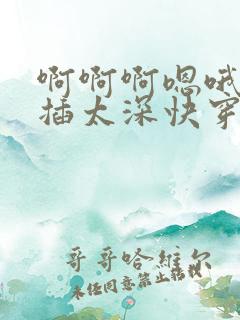 啊啊啊嗯哦
插太深快穿
哥哥哈維尔
未经同意禁止转载